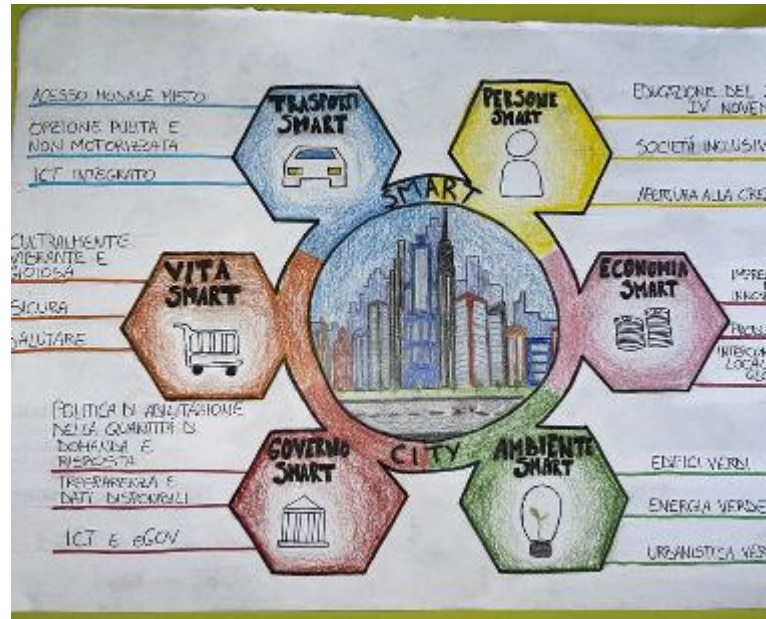 ACESSO MODALE MISTO
OPZIONE PULITA E
NON MOTORIZZATA
ICT INTEGRATO
TRASPORTI
SMART
PERSONE
SMART
EDUCAZIONE DEL
IV NOVEM
SOCIETÀ INCLUSIV
APERTURA ALLA CRE
SMART
CITY
CULTRALMENTE
VIBRANTE E
GIOIOSA
SICURA
SALUTARE
VITA
SMART
ECONOMIA
SMART
IMPRE
INNOV
PRODU
INTERCON
LOCAL
GLO
POLITICA DI ABILITAZIONE
DELLA QUANTITÀ DI
DOMANDA E
RISPOSTA
DATI DISPONIBILI
ICT E eGOV
GOVERNO
SMART
AMBIENTE
SMART
EDIFICI VERDI
ENERGIA VERDE
URBANISTICA VER